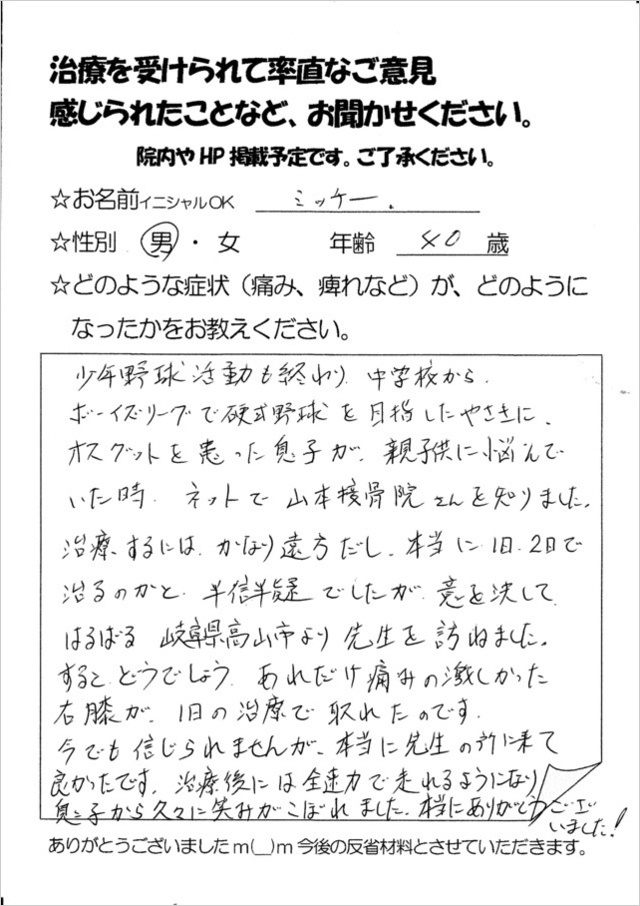 治療を受けられて率直なご意見
感じられたことなど、お聞かせください。
院内やHP掲載予定です。ご了承ください。
☆お名前イニシャルOK ミッキー.
☆性別 男・女 年齢 40 歳
☆どのような症状（痛み、痺れなど）が、どのように
なったかをお教えください。
少年野球活動も終わり、中学校から、
ボーイズリーグで硬式野球を目指したやさきに、
オスグットを患った息子が、親子供に悩んで
いた時、ネットで山本接骨院さんを知りました。
治療するには、かなり遠方だし、本当に1日、2日で
治るのかと、半信半疑でしたが、意を決して、
はるばる 岐阜県高山市より 先生を訪ねました。
すると、どうでしょう、あれだけ痛みの激しかった
右膝が、1日の治療で取れたのです。
今でも信じられませんが、本当に先生の所に来て
良かったです。治療後には全速力で走れるようになり
息子から久々に笑みがこぼれました。本当にありがとうござい
いました!
ありがとうございましたm(__)m今後の反省材料とさせていただきます。